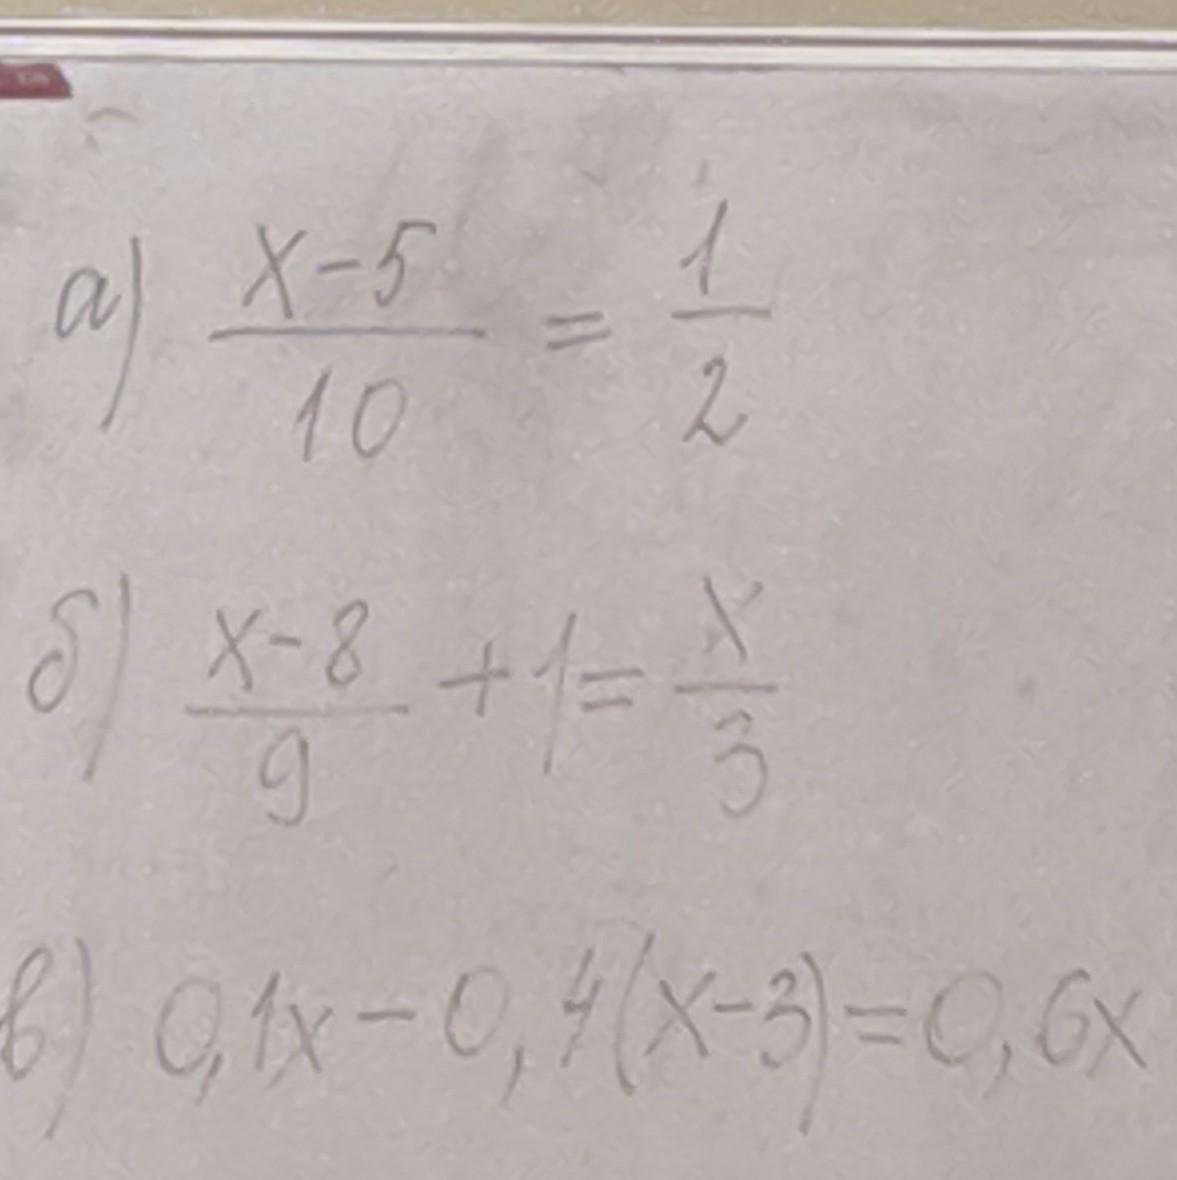 а) x-5/10 = 1/2
б) x-8/9 + 1 = x/3
в) 0,1x - 0,4(x-3) = 0,6x